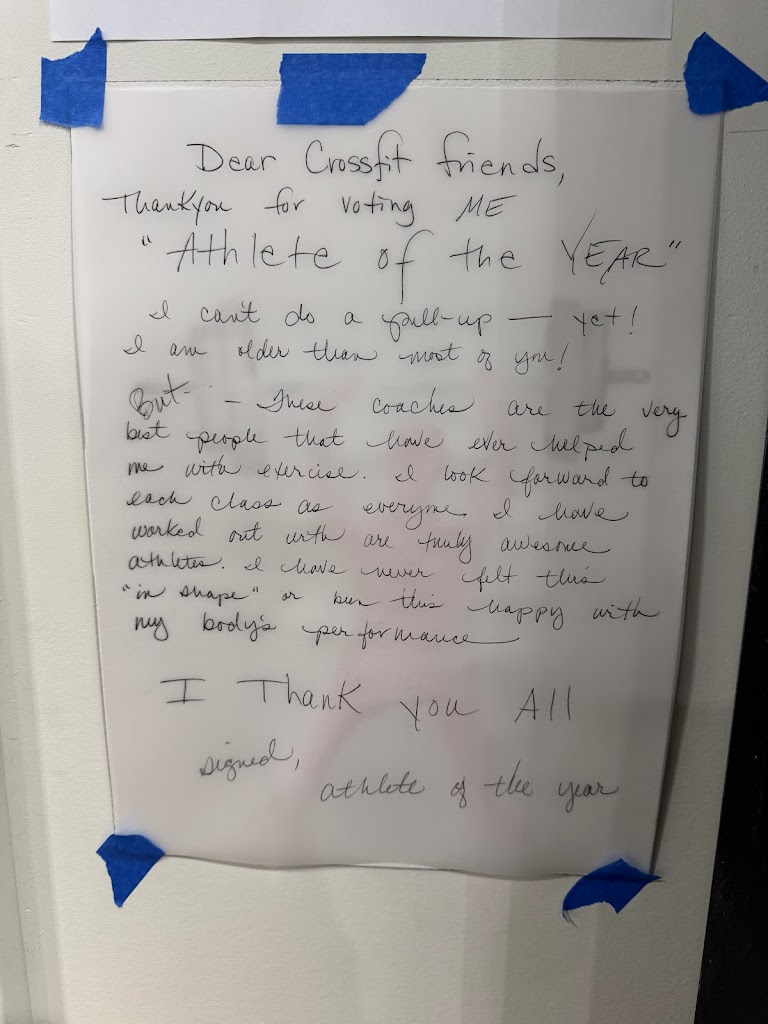 Dear Crossfit friends,
Thankyou for voting ME
"Athlete of the YEAR"
I can't do a pull-up — yet!
I am older than most of you!
But - These coaches are the very
best people that have ever helped
me with exercise. I look forward to
each class as everyone I have
worked out with are truly awesome
athletes. I have never felt this
"in shape" or been this happy with
my body's performance
I Thank you All
signed,
athlete of the year